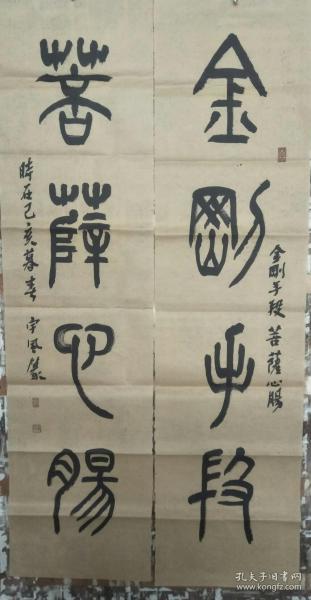 金剛手段
金剛手段 菩薩心腸
菩薩心腸
時在己亥暮春
孔夫子旧书网